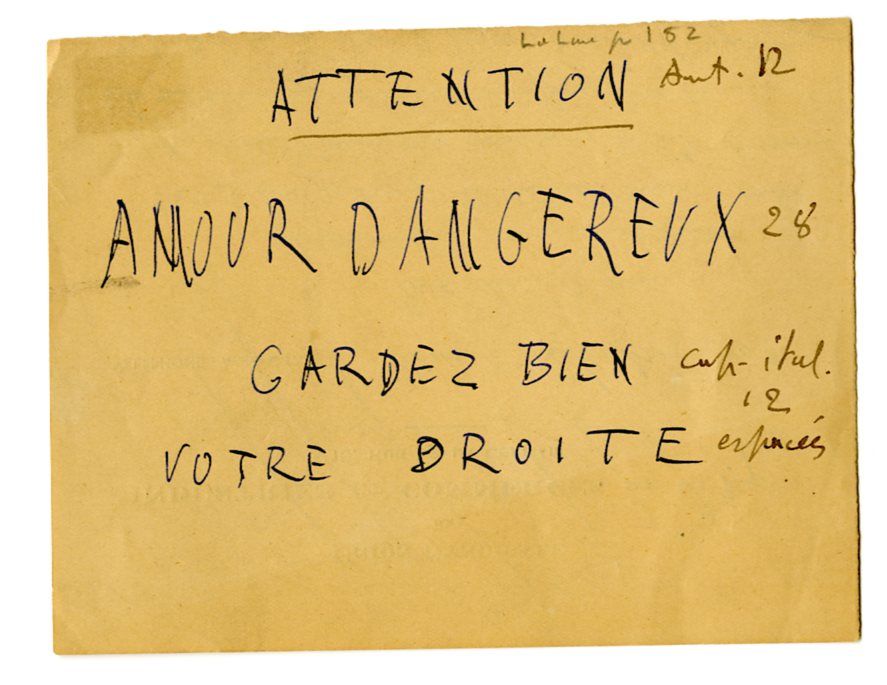 p 152
ATTENTION Ant. 12
AMOUR DANGEREUX 28
GARDEZ BIEN cap-ital.
12
VOTRE DROITE espacées